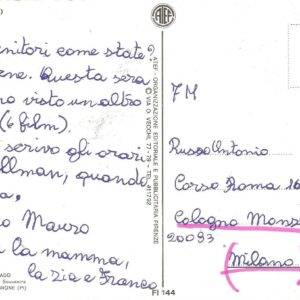 enitori come state?
ene. Questa sera
no visto un altro
(6 film).
scrivo gli orari
llman, quando
a,
o Mauro
la mamma,
la zia e Franco
ATEF - ORGANIZZAZIONE EDITORIALE E PUBBLICITARIA FIRENZE
VIA O. VECCHI, 77 - 79 - TEL. 411792
ATEF
FI 144
7M
Russo Antonio
Corso Roma 16
Cologno Monz
20093
(Milano